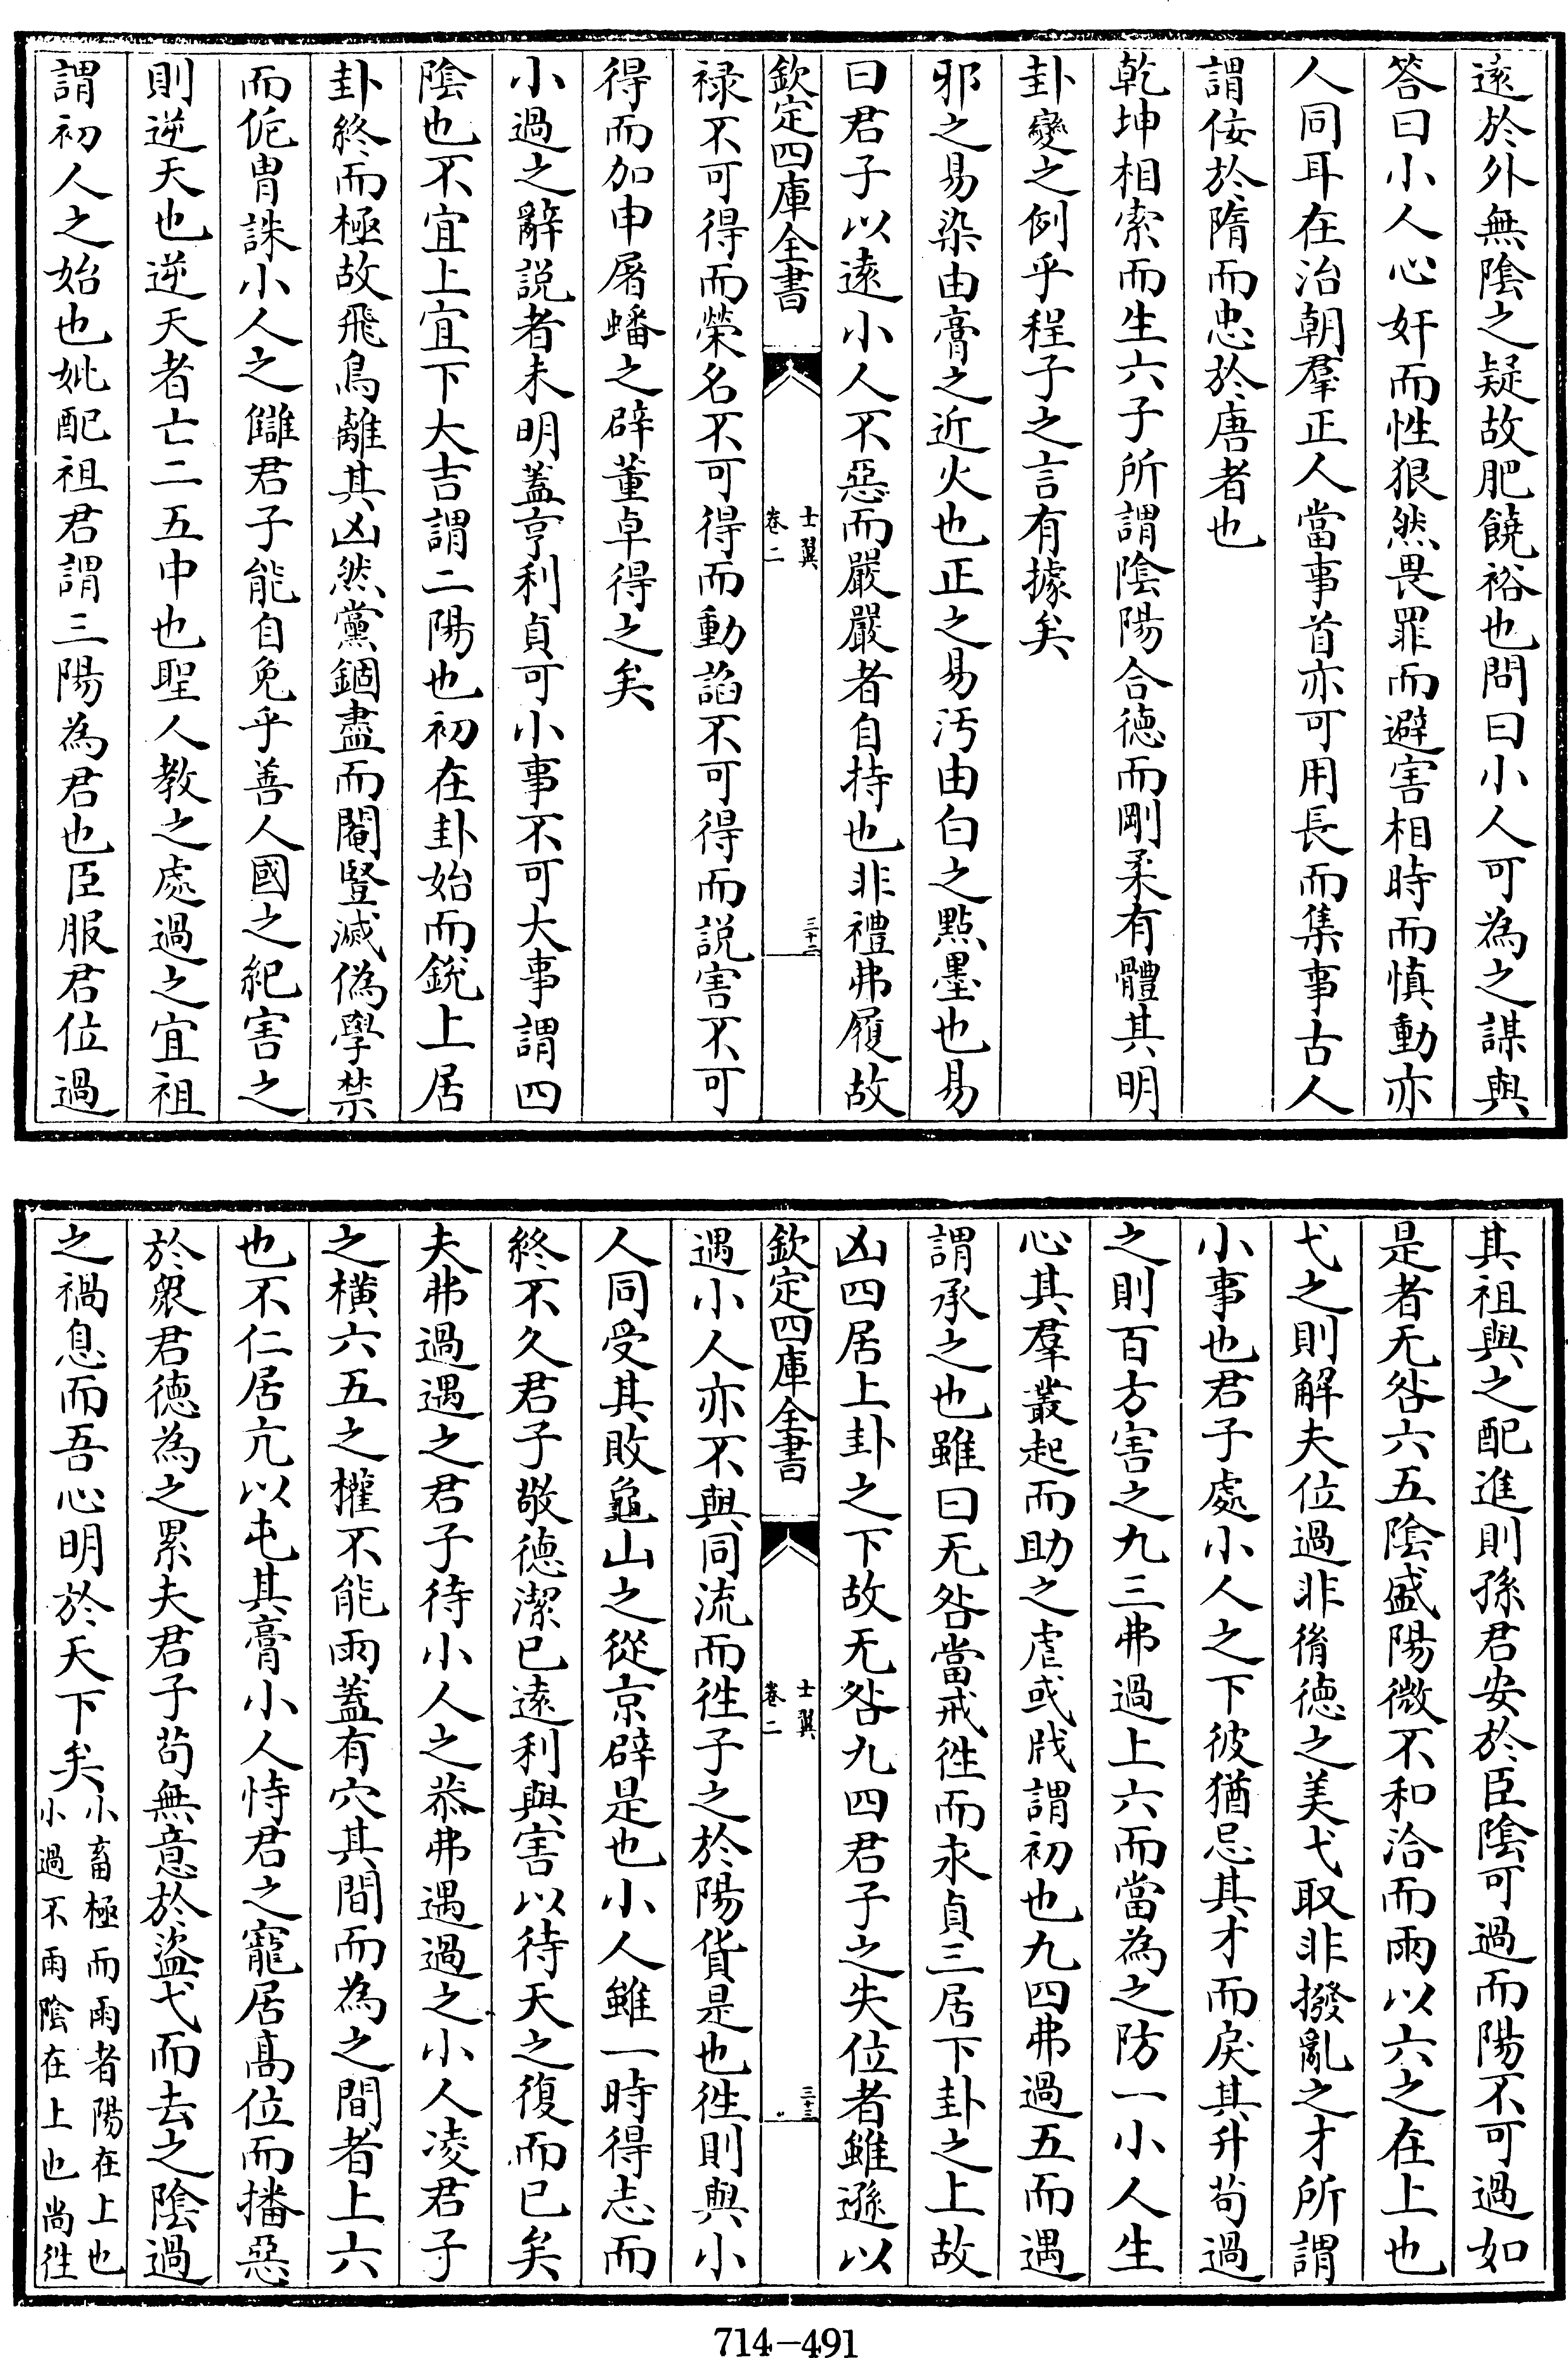 遠於外無陰之疑故肥饒裕也問曰小人可為之謀與
答曰小人心奸而性狠然畏罪而避害相時而慎動亦
人同耳在治朝羣正人當事首亦可用長而集事古人
謂佞於隋而忠於唐者也
乾坤相索而生六子所謂陰陽合徳而剛柔有體其明
卦變之例乎程子之言有據矣
邪之易染由膏之近火也正之易汚由白之㸃墨也易
曰君子以遠小人不惡而嚴嚴者自持也非禮弗履故
欽定四庫全書
士翼
卷二
三十二
禄不可得而榮名不可得而動諂不可得而説害不可
得而加申屠蟠之辟董卓得之矣
小過之辭説者未明蓋亨利貞可小事不可大事謂四
陰也不宜上宜下大吉謂二陽也初在卦始而銳上居
卦終而極故飛鳥離其凶然黨錮盡而閹豎滅偽學禁
而侂胄誅小人之讎君子能自免乎善人國之紀害之
則逆天也逆天者亡二五中也聖人教之處過之宜祖
謂初人之始也妣配祖君謂三陽為君也臣服君位過
其祖與之配進則孫君安於臣陰可過而陽不可過如
是者无咎六五陰盛陽微不和洽而雨以六之在上也
弋之則解夫位過非脩徳之美弋取非撥亂之才所謂
小事也君子處小人之下彼猶忌其才而戾其升苟過
之則百方害之九三弗過上六而當為之防一小人生
心其羣叢起而助之虐或戕謂初也九四弗過五而遇
謂承之也雖曰无咎當戒徃而永貞三居下卦之上故
凶四居上卦之下故无咎九四君子之失位者雖遜以
欽定四庫全書
士翼
卷二
三十三
遇小人亦不與同流而徃子之於陽貨是也徃則與小
人同受其敗龜山之從京辟是也小人雖一時得志而
終不久君子敬徳潔已遠利與害以待天之復而已矣
夫弗過遇之君子待小人之恭弗遇過之小人凌君子
之横六五之權不能雨蓋有穴其間而為之間者上六
也不仁居亢以屯其膏小人恃君之寵居髙位而播惡
於衆君徳為之累夫君子苟無意於盜弋而去之陰過
之禍息而吾心明於天下矣小畜極而雨者陽在上也
小過不雨陰在上也尚徃
714-491